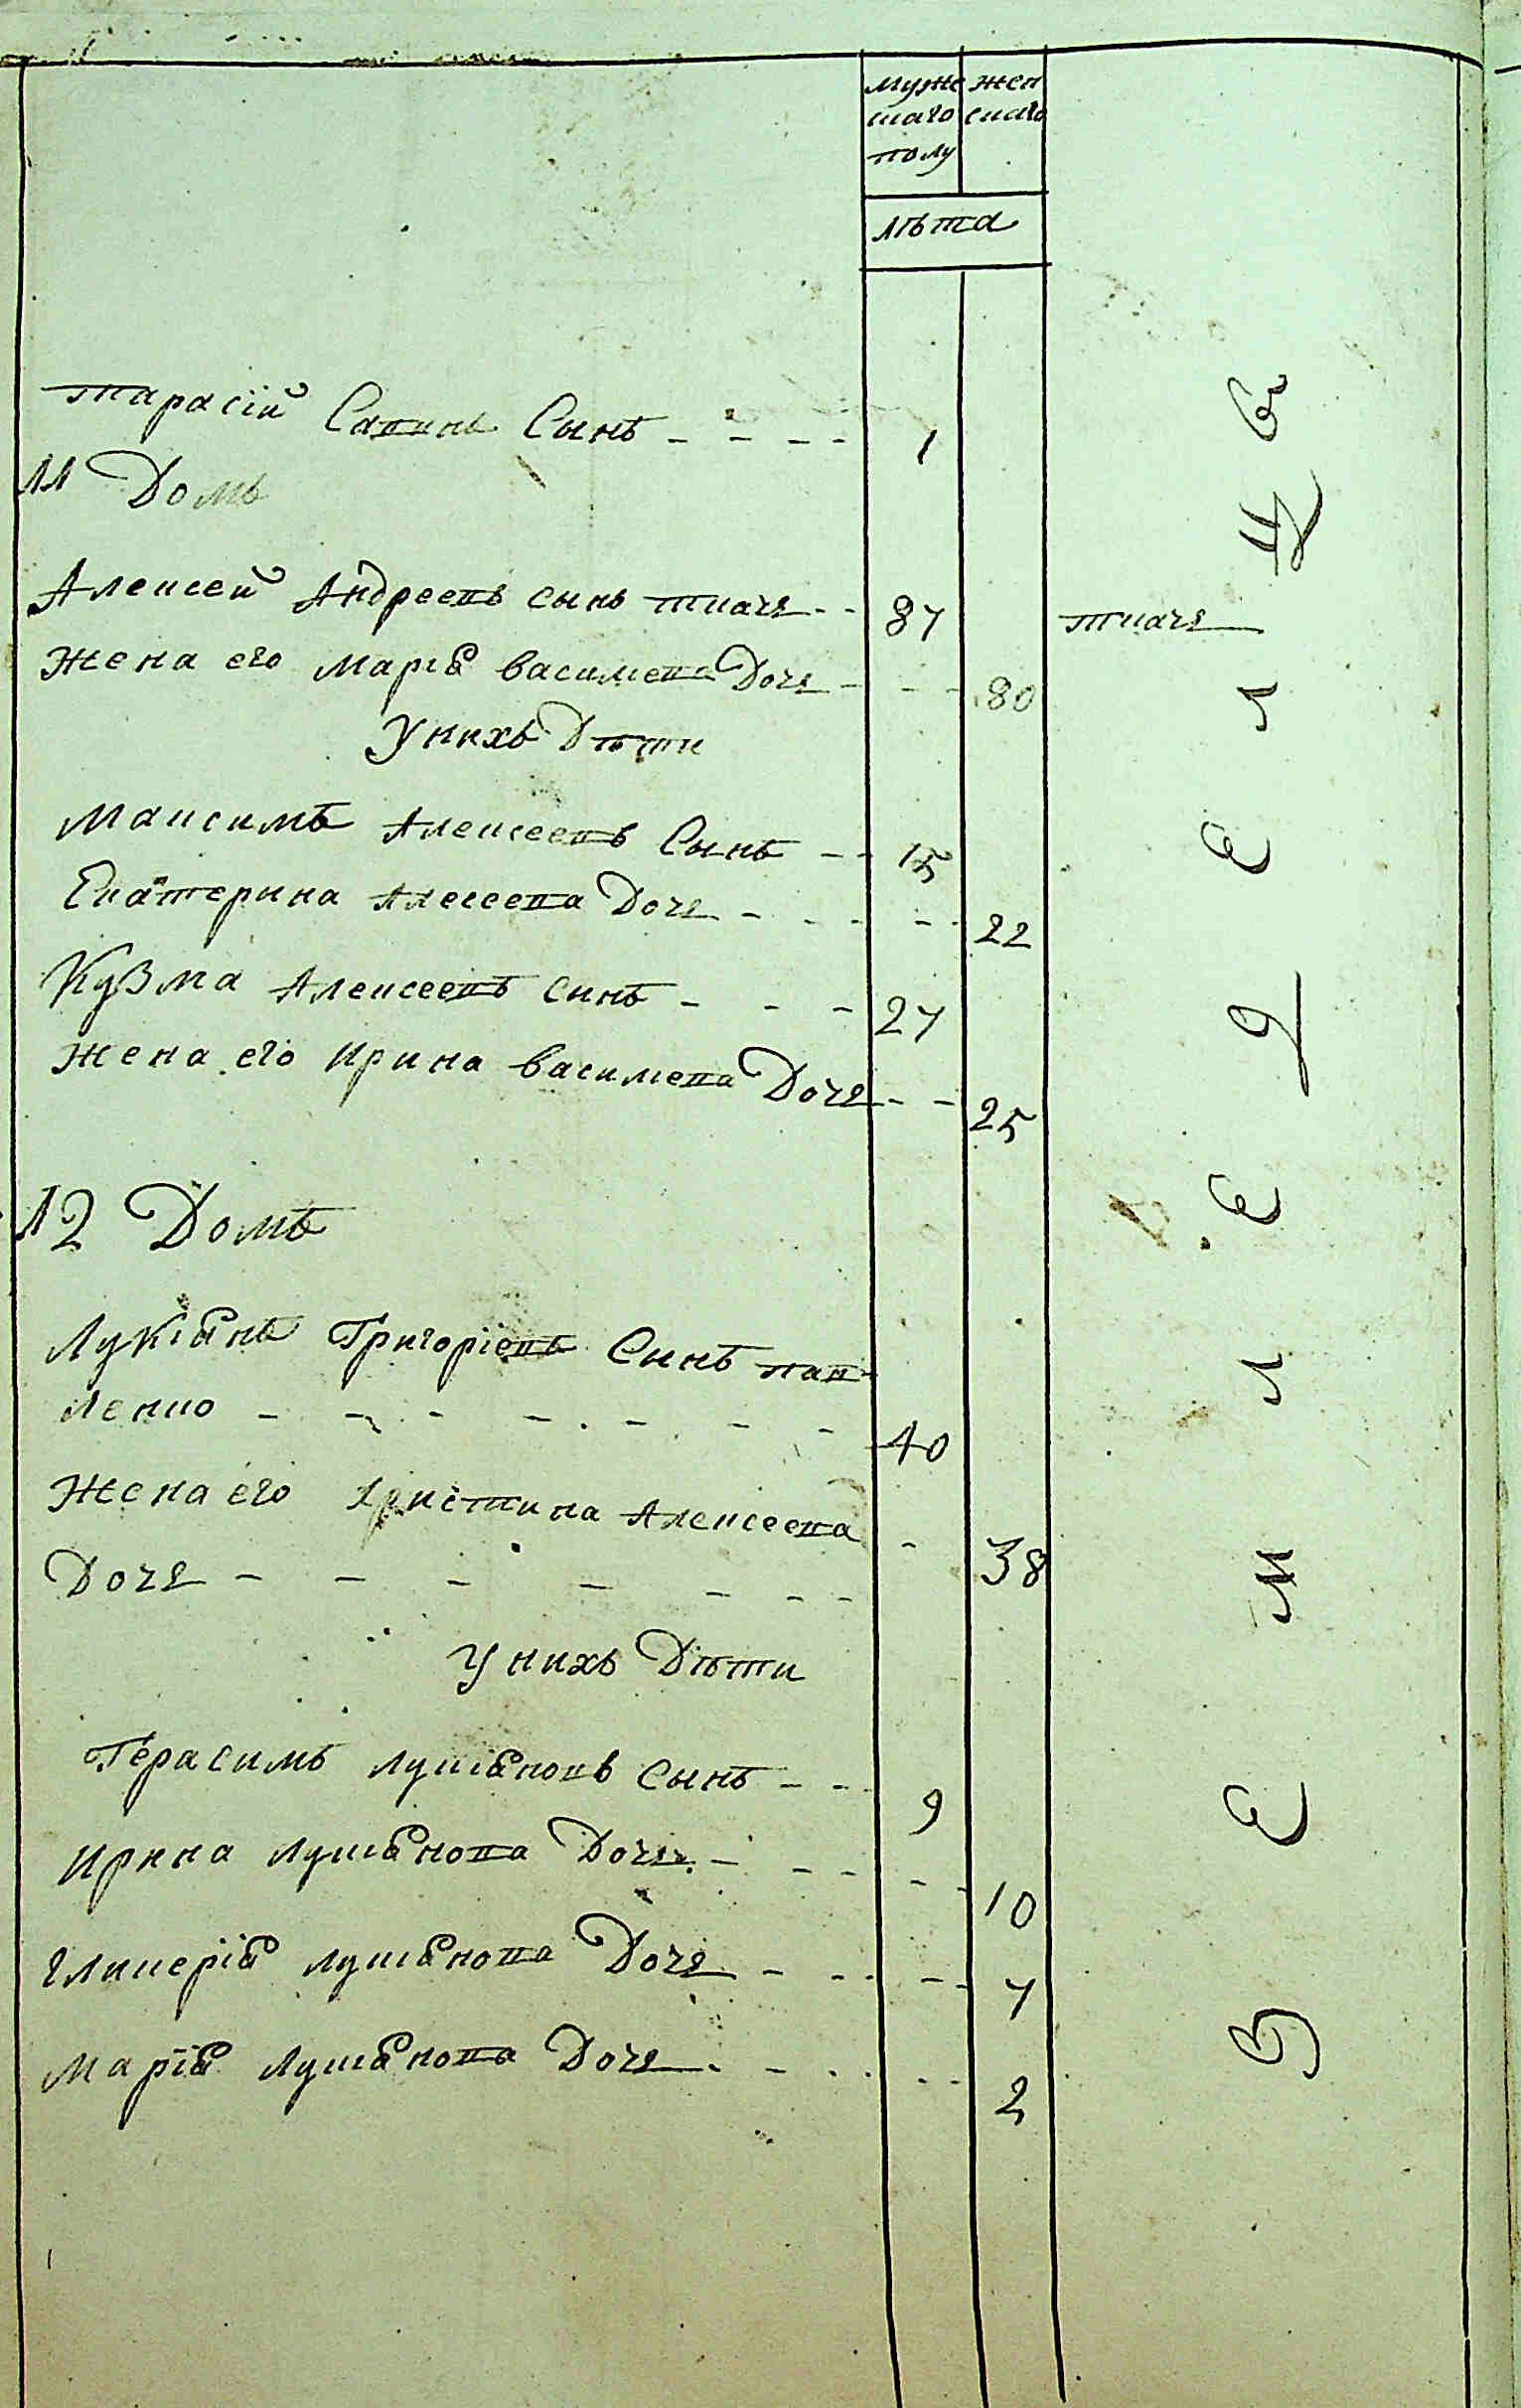 муже жен
скаго скаго
полу
лѣта
Тарасій Савинъ Сынъ - - - - 1
11 Домъ
Алексей Андреевъ сынъ ткачь - - 87 ткачь
Жена его Марія василиева Дочь - - - 80
У нихъ Дѣти
Максимъ Алексеевъ Сынъ - - 15
Екатерина Алексеева Дочь - - - - - 22
Кузма Алексеевъ синъ - - - 27
Жена его Ирина василиева Дочь - - 25
12 Домъ
Лукіанъ Григоріевъ Синъ пав
ленко - - - - - - - 40
Жена его Христина Алексеева - 38
Дочь - - - - - - -
У нихъ Дѣти
Герасимъ Лукіановъ Сынъ - - 9
Ирина Лукіанова Дочь - - - - - 10
Гликерія Лукіанова Дочь - - - - - 7
Марія Лукіанова Дочь - - - - - - 2
Земледелцы